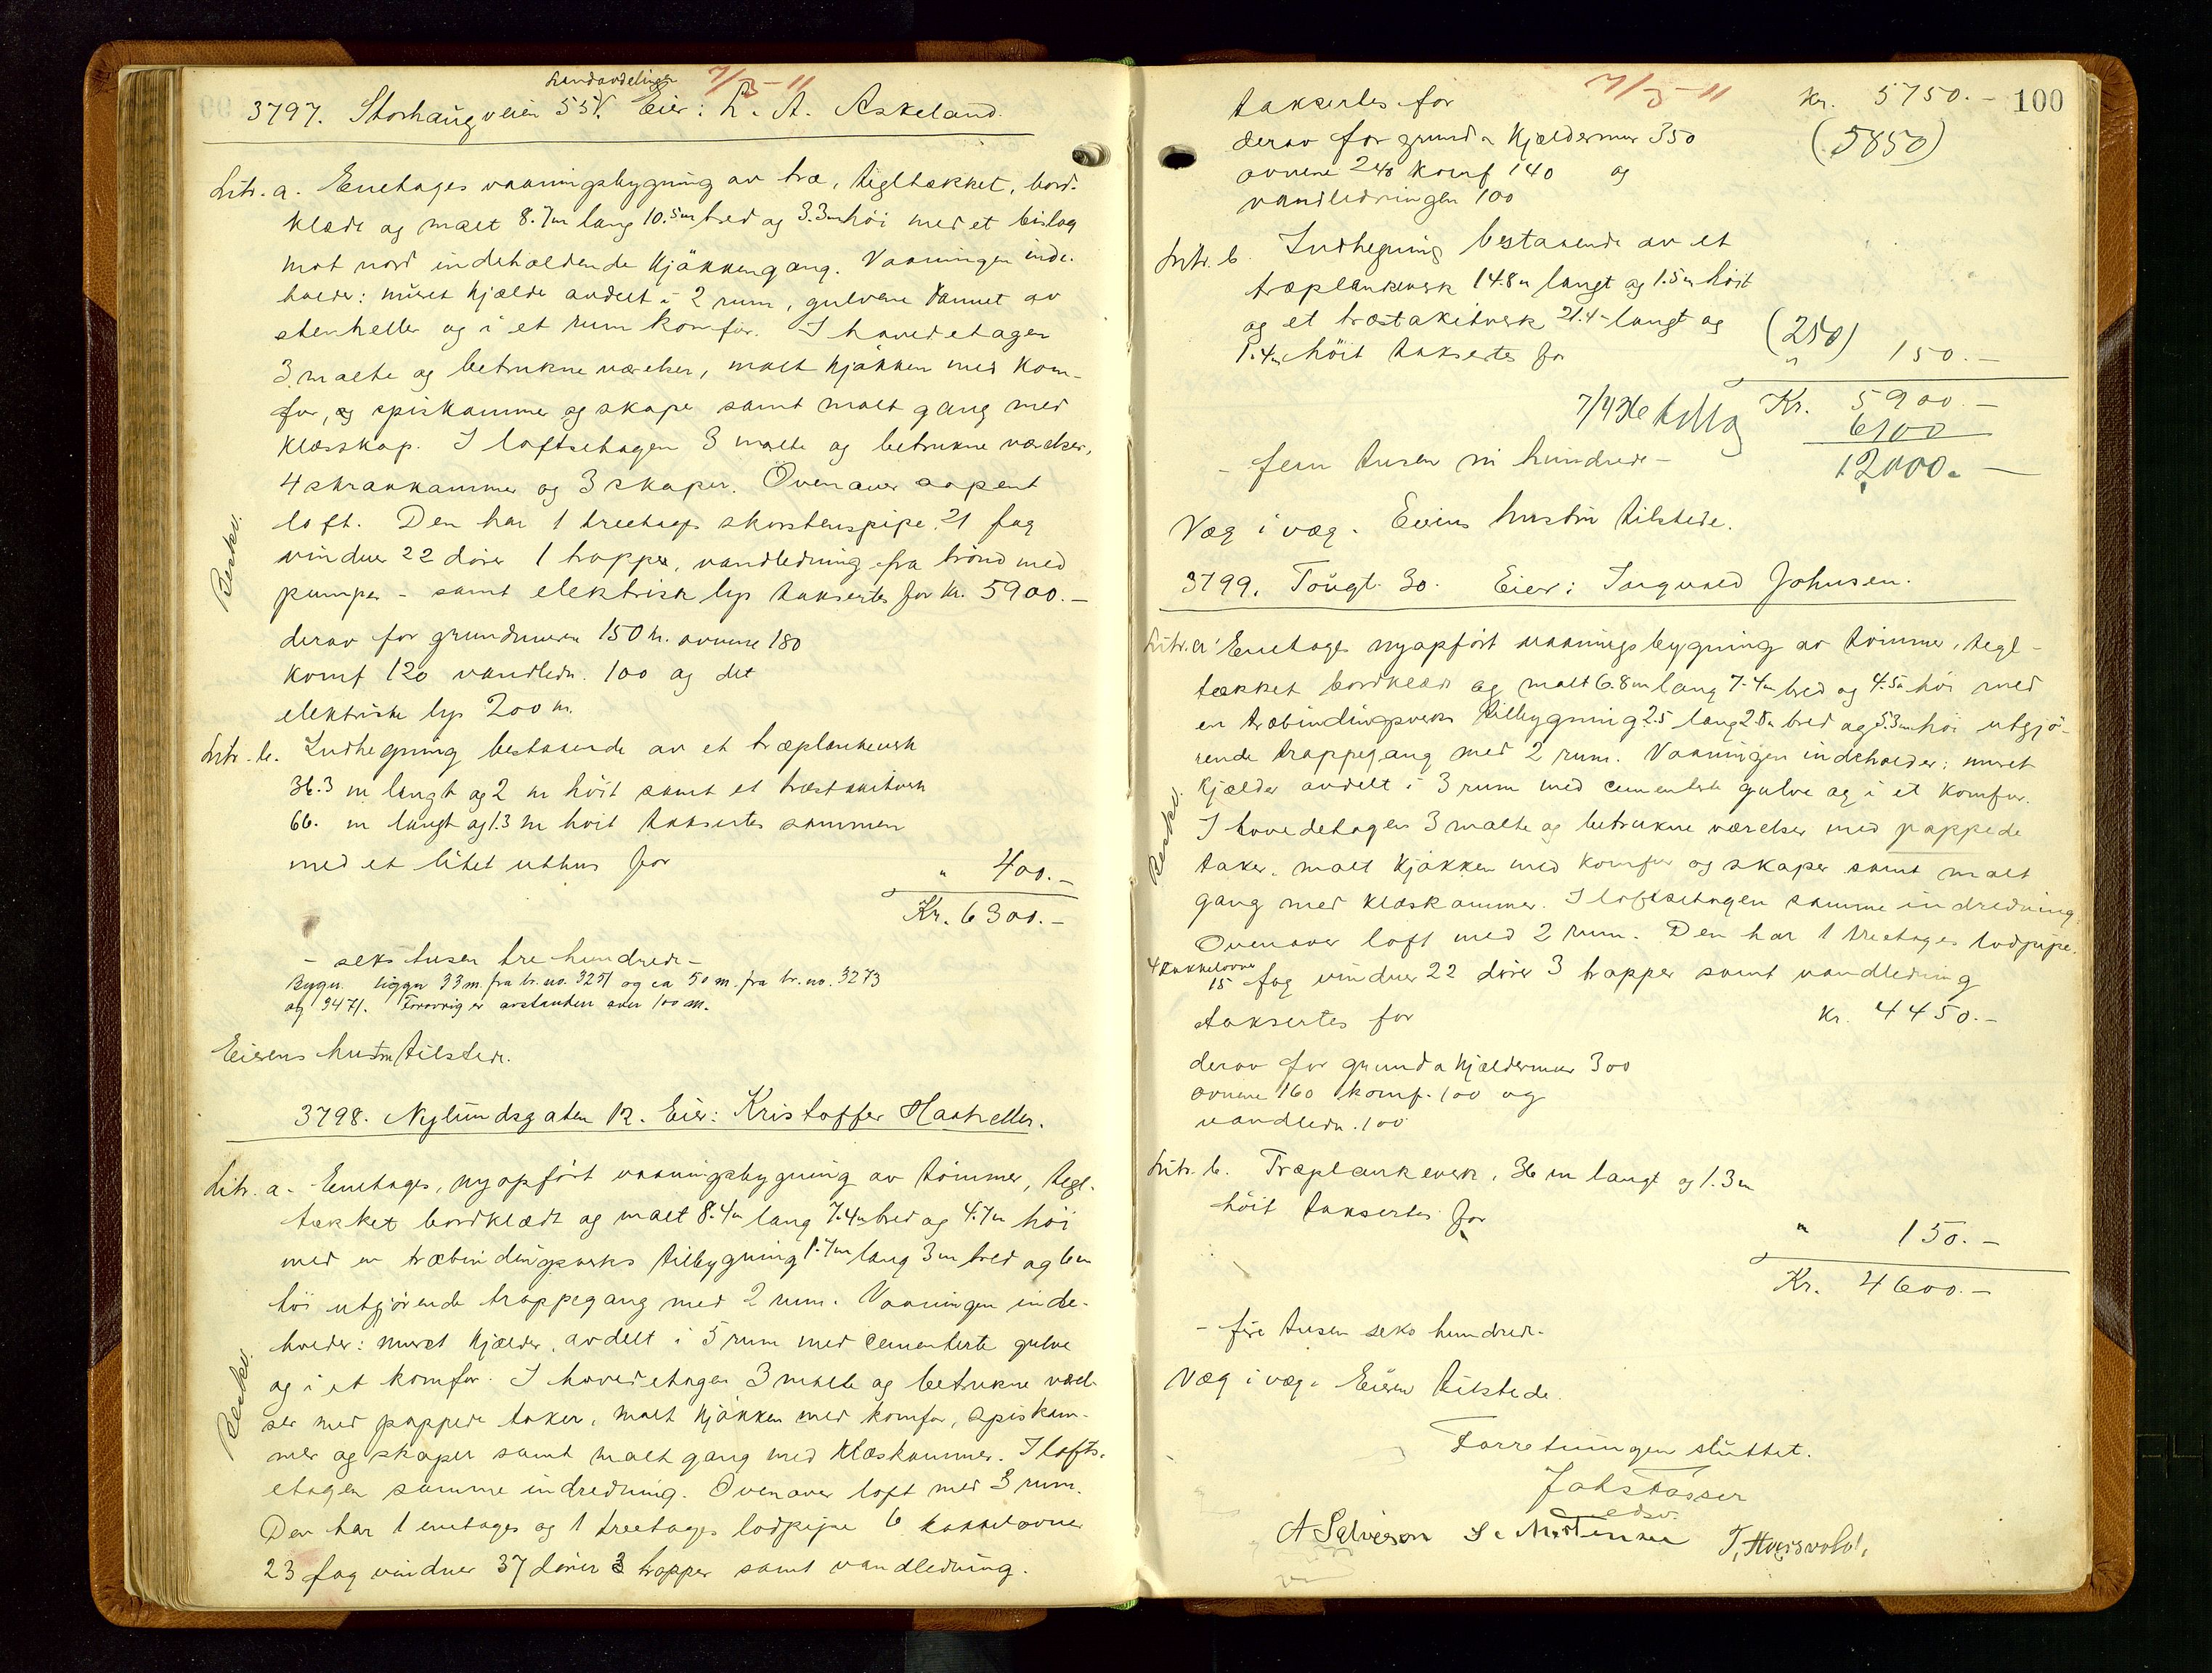 Landavdelingen 7/3-11
3797. Storhaugveien 55V. Eier: L. A. Askeland.
Litr. a. Enetages vaaningsbygning av træ, tegltækket, bord-
klædt og malt 8.7m lang 10.5m bred og 3.3m høi med et bislag
mot nord indeholdende kjøkkengang. Vaaningen inde-
holder: muret kjælder avdelt i 2 rum, gulvene dannet av
stenheller og i et rum komfur. I hovedetagen
3 malte og betrukne værelser, malt kjøkken med kom-
fur, og spiskammer og skape samt malt gang med
klæsskap. I loftsetagen 3 malte og betrukne værelser,
4 skraakammer og 3 skaper. Ovenover aapent
loft. Den har 1 treetages skorstenspipe. 21 fag
vinduer 22 dører 1 trappe, vandledning fra brønd med
pumpe - samt elektrisk lys taksertes for kr. 5900.-
Beskv.
derav for grundmuren 150 kr. ovnene 180
komf 120 vandledn. 100 og det
elektriske lys 200 kr.
Litr. b. Indhegning bestaaende av et træplankeverk
36.3 m langt og 2 m høit samt et træstakitverk
66. m langt og 1.3 m høit taksertes sammen
med et litet uthus for " 400.-
Kr. 6300.-
- seks tusen tre hundrede -
Bygn. ligger 33 m. fra br. no. 3251 og ca 50 m. fra br. no. 3273
og 3471. Forøvrig er avstanden over 100 m.
Eierens hustru tilstede.
3798. Nylundsgaten 12. Eier: Kristoffer Haaheller.
Litr. a. Enetages, nyopført vaaningsbygning av tømmer, tegl-
tækket bordklædt og malt 8.4m lang 7.4m bred og 4.7m høi
med en træbindingsverks tilbygning 1.7m lang 3m bred og 6m
høi utgjørende trappegang med 2 rum. Vaaningen inde-
holder: muret kjælder, avdelt i 5 rum med cementerte gulve
og i et komfur. I hovedetagen 3 malte og betrukne værel-
ser med pappede taker, malt kjøkken med komfur, spiskam-
mer og skaper samt malt gang med klæskammer. I lofts-
etagen samme indredning. Ovenover loft med 3 rum.
Den har 1 enetages og 1 treetages lodpipe 6 kakkelovner
23 fag vinduer 37 dører 3 trapper samt vandledning.
Beskv.
7/3-11
100
taksertes for kr. 5750.-
derav for grund & kjældermur 350 (5850)
ovnene 240 komf 140 og
vandledningen 100
Litr. b. Indhegning bestaaende av et
træplankeverk 14.8m langt og 1.5m høit
og et træstakitverk 21.4m langt og (250)
1.4m høit taksertes for " 150.-
7/4 Kr. 5900.-
6100
- fem tusen ni hundrede - 12000.-
Væg i væg. Eierens hustru tilstede.
3799. Tougt. 30. Eier: Ingvald Johnsen.
Litr. a. Enetages nyopført vaaningsbygning av tømmer, tegl-
tækket bordklædt og malt 6.8m lang 7.4m bred og 4.5m høi med
en træbindingsverks tilbygning 2.5 lang 2.8m bred og 5.3m høi utgjø-
rende trappegang med 2 rum. Vaaningen indeholder: muret
kjælder avdelt i 3 rum med cementerte gulve og i et komfur.
I hovedetagen 3 malte og betrukne værelser med pappede
taker, malt kjøkken med komfur og skaper samt malt
gang med klæskammer. I loftsetagen samme indredning.
Ovenover loft med 2 rum. Den har 1 treetages lodpipe.
4 kakkelovne
15 fag vinduer 22 dører 3 trapper samt vandledning
Beskv.
taksertes for kr. 4450.-
derav for grund & kjældermur 300
ovnene 160 komf. 100 og
vandledn. 100
Litr. b. Træplankeverk, 36 m langt og 1.3m
høit taksertes for " 150.-
Kr. 4600.-
- fire tusen seks hundrede -
Væg i væg. Eieren tilstede.
Forretningen sluttet.
edsv.